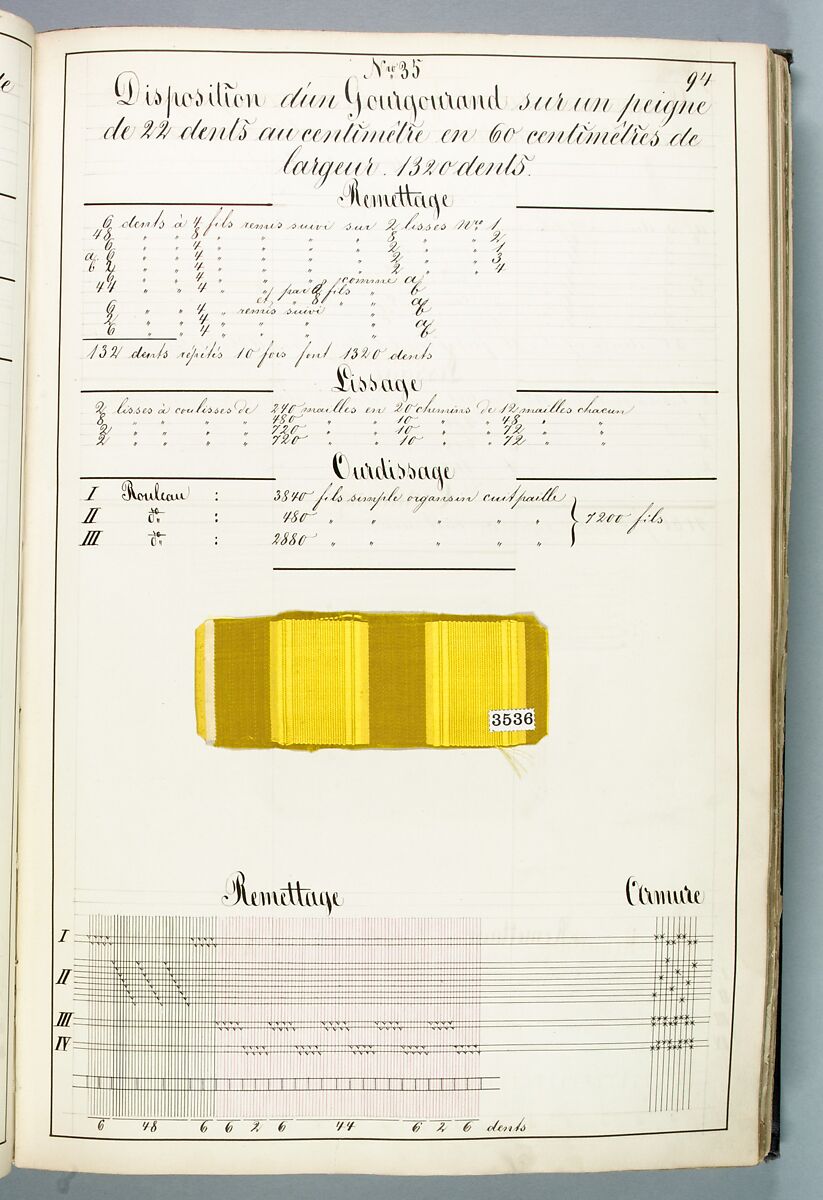 Nro 35
94
Disposition d'un Gourgourand sur un peigne
de 22 dents au centimètre en 60 centimètres de
largeur. 1320 dents.
Remettage
6 dents à 4 fils remis suivi sur 2 lisses Nro 1
48 " " 8 " " " " 8 " " 2
6 " " 4 " " " " 2 " " 1
a 6 " " 4 " " " " 2 " " 3
b 2 " " 4 " " " " 2 " " 4
6 " " 4 " " " comme a
44 " " 4 " par 2 fils " b
et 8 " "
6 " " 4 " remis suivi " a
2 " " 4 " " " " b
6 " " 4 " " " " a
132 dents répétés 10 fois font 1320 dents
Lissage
2 lisses à coulisses de 240 mailles en 20 chemins de 12 mailles chacun
8 " " " " 480 " " 10 " " 48 " "
2 " " " " 720 " " 10 " " 72 " "
2 " " " " 720 " " 10 " " 72 " "
Ourdissage
I Rouleau : 3840 fils simple organsin cuit paille
II do : 480 " " " " "
7200 fils
III do : 2880 " " " " "
3536
Remettage
Armure
I
II
III
IV
6 48 6 6 2 6 44 6 2 6 dents